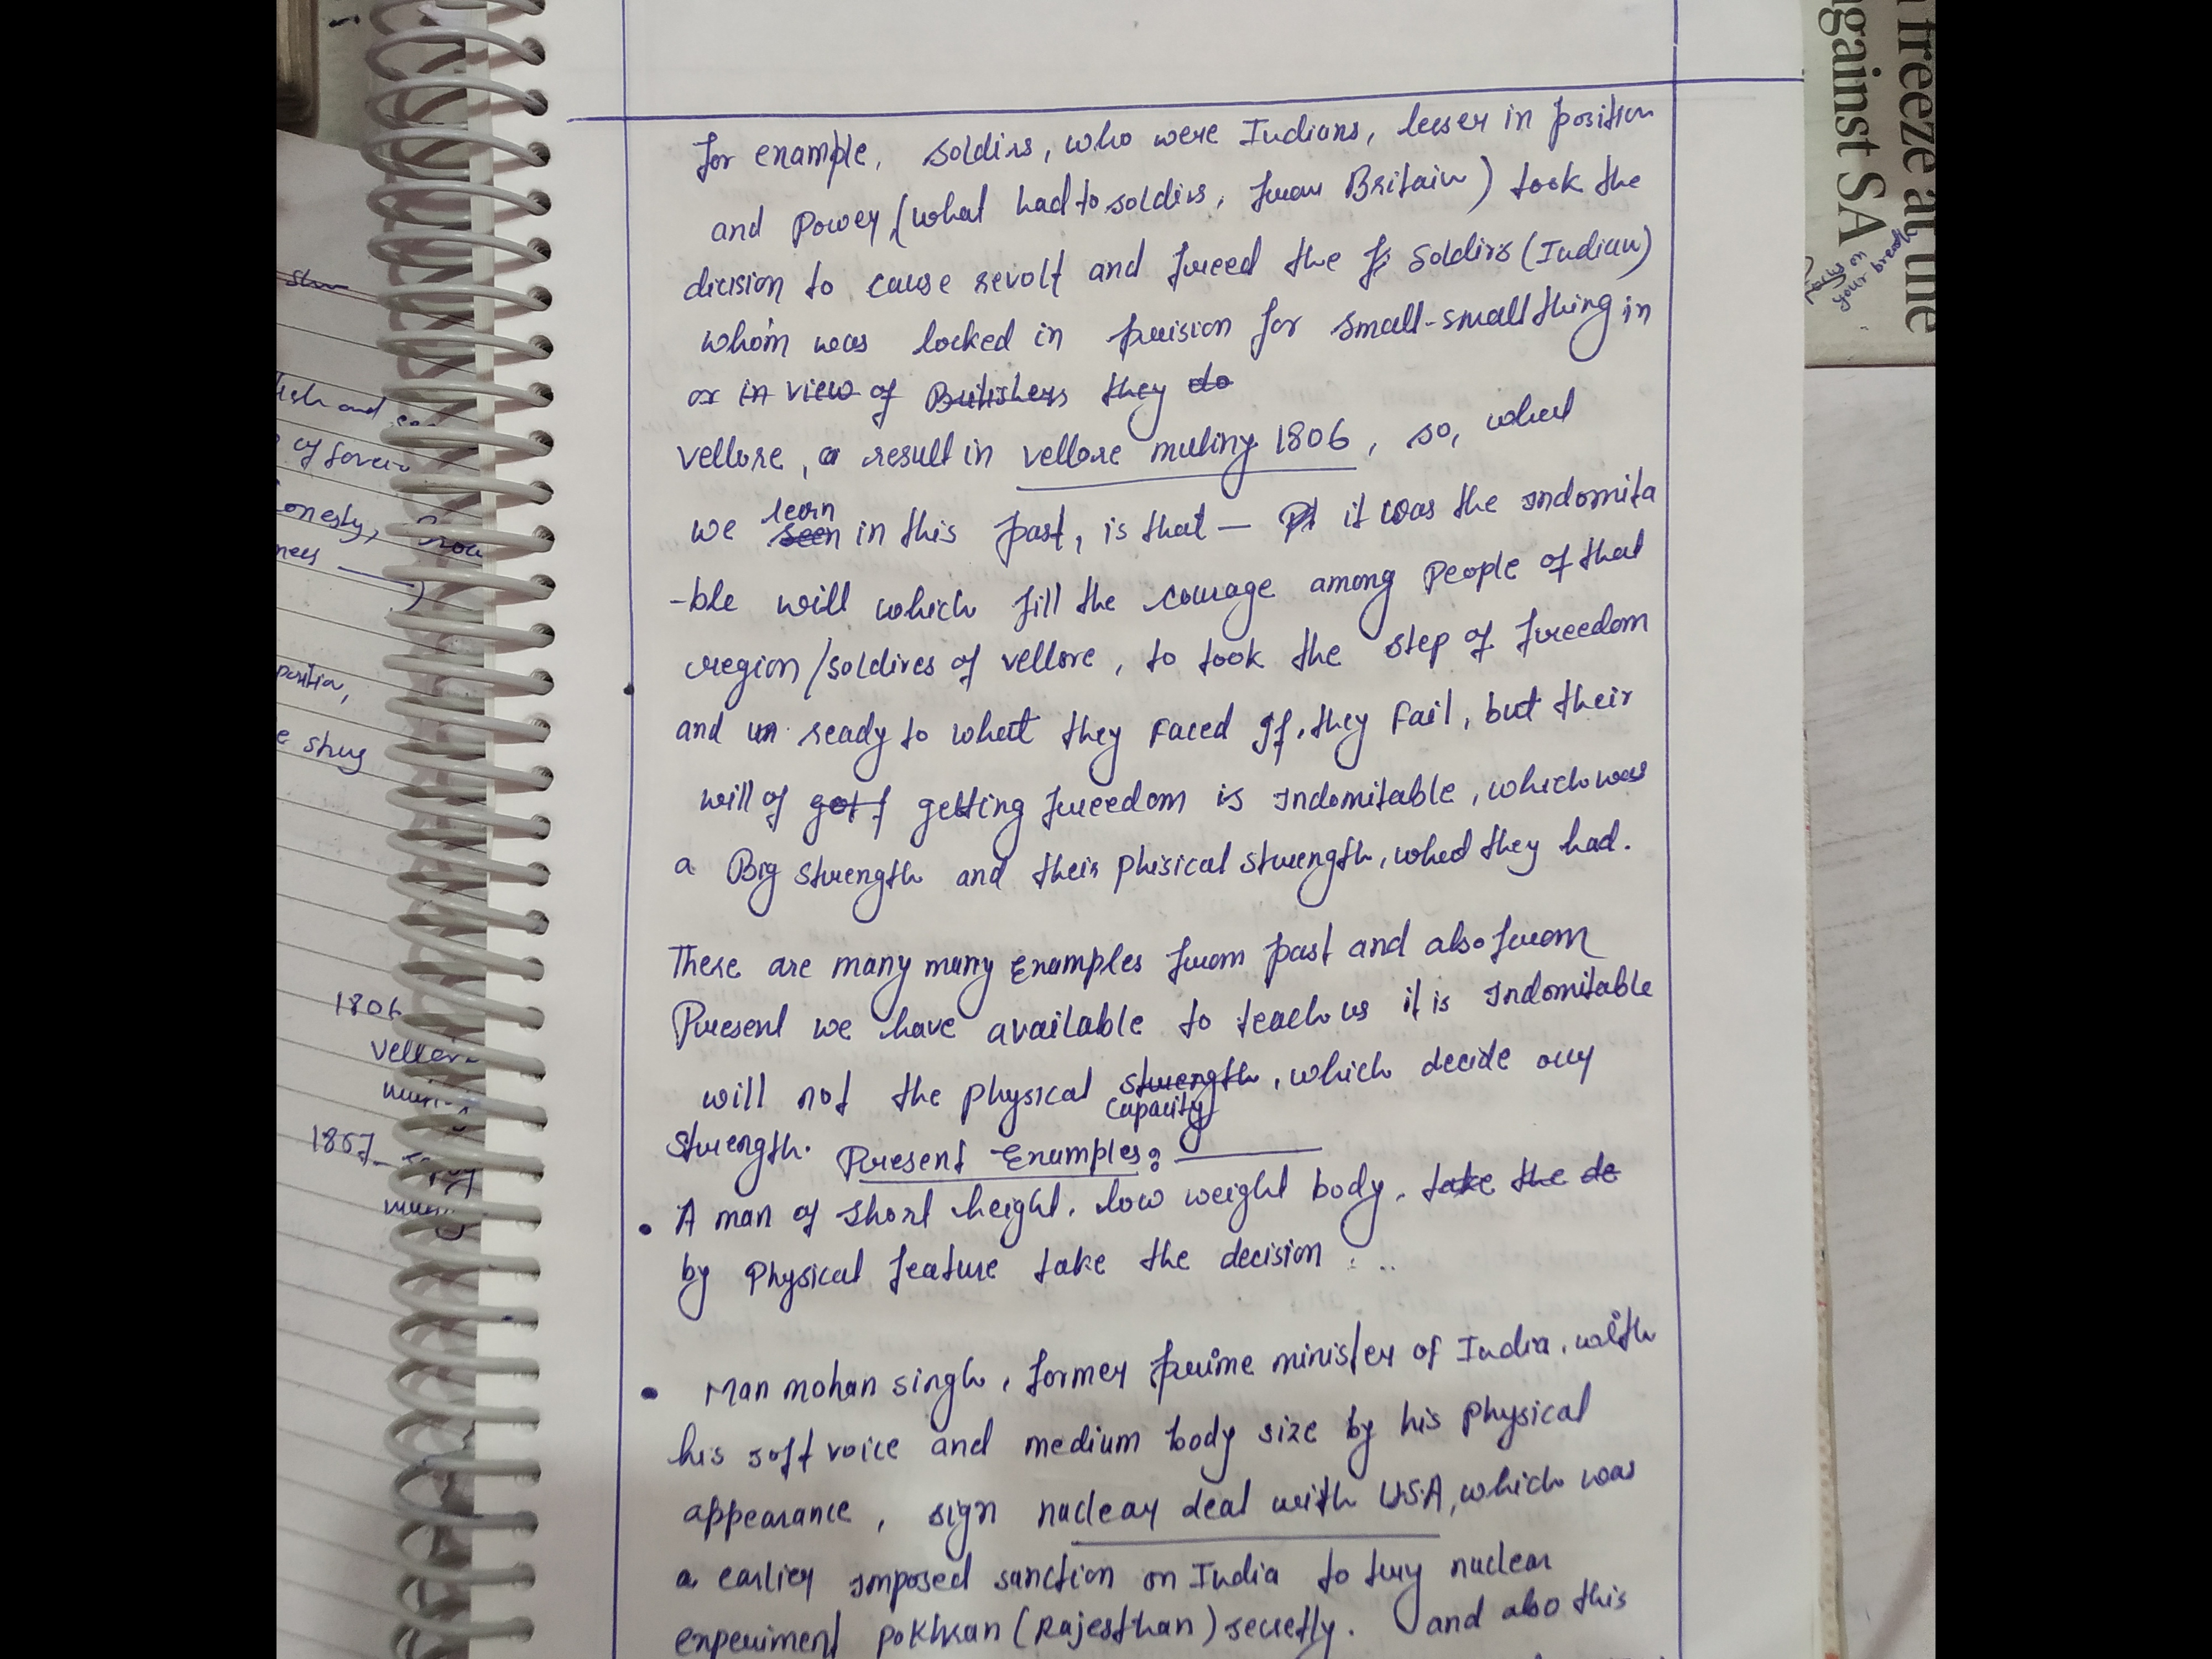 for example, soldirs, who were Indians, lesser in position
and Power, (what had to soldirs, from Britain) took the
dicision to cause revolt and freed the fs soldirs (Indian)
whom was locked in prision for small-small thing in
or in view of Britishers they do
vellore, a result in vellore mutiny 1806, so, what
learn
we seen in this past, is that — Pt it was the Indomita
-ble will which fill the courage among People of that
region/soldires of vellore, to took the step of freedom
and un ready to what they Faced If, they Fail, but their
will of got f getting freedom is Indomitable, which was
a Big strength and their phisical strength, what they had.
There are many many Examples from past and also from
Present we have available to teach us it is Indomitable
will not the physical strength, which decide our
capacity
strength. Present Examples:
• A man of short height, low weight body, take the de
by Physical feature take the decision . ..
• Man mohan singh, former prime minister of India, with
his soft voice and medium body size by his physical
appearance, sign nuclear deal with USA, which was
a earlier Imposed sanction on India to try nuclear
experiment pokhran (Rajesthan) secretly. and also this
freeze at the
against SA
Focus on
your breath
stru
lish and
of forei
onesty,
ness —)
positio,
e strug
1806
vellore
mutiny
1857_
mutiny